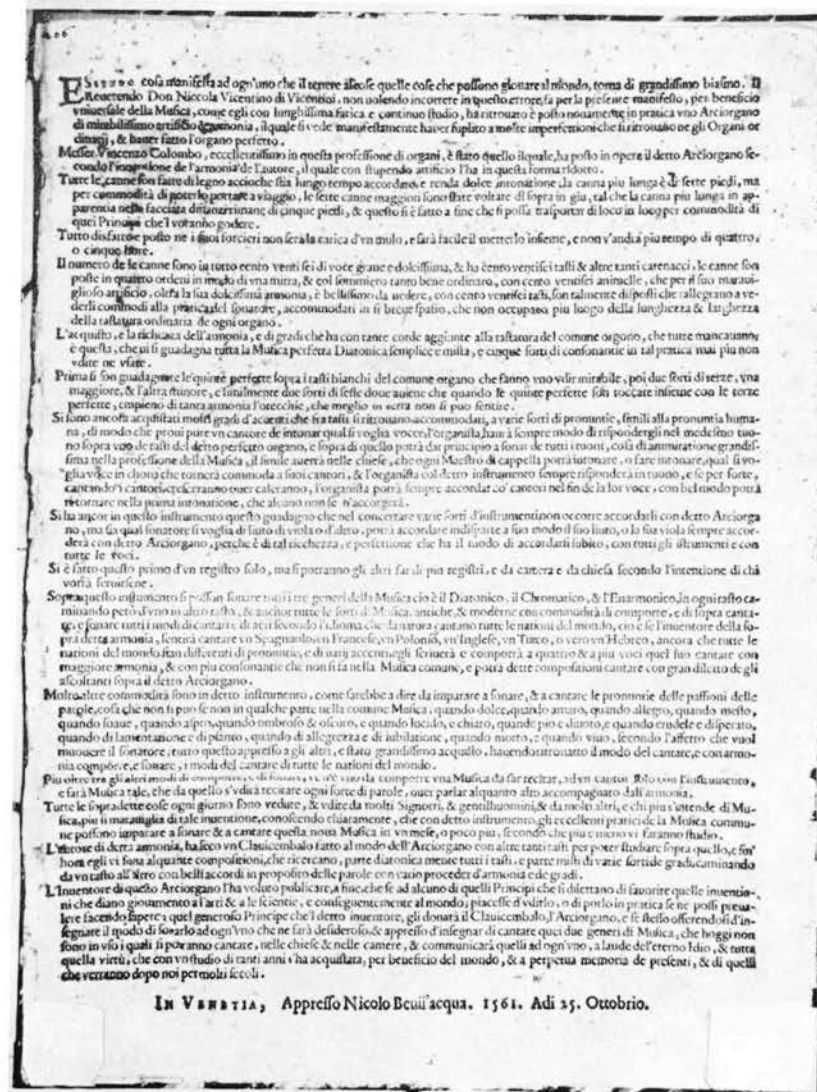 ESsendo cosa manifesta ad ogn'uno che il tenere ascose quelle cose che possono giouare al mondo, torna di grandissimo biasimo. Il
Reuerendo Don Niccola Vicentino di Vicentini, non uolendo incorrere in questo errore, fa per la presente manifesto, per beneficio
vniuersale della Musica, come egli con lunghissima fatica e continuo studio, ha ritrouato e posto nouamente in pratica vno Arciorgano
di mirabilissimo artificio & armonia, il quale si vede manifestamente hauer suplito a molte imperfettioni che si ritrouano ne gli Organi or
dinarij, & hauer fatto l'organo perfetto.
Messer Vincenzo Colombo, eccellentissimo in questa professione di organi, è stato quello ilquale, ha posto in opera il detto Arciorgano se-
condo l'inuentione de l'armonia de l'autore, il quale con stupendo artificio l'ha in questa forma ridotto.
Tutte le canne son fatte di legno accioche stia lungo tempo accordato, e renda dolce intonatione, la canna piu lunga è di sette piedi, ma
per commodità di poterlo portare a viaggio, le sette canne maggiori sono state voltare di sopra in giu, tal che la canna piu lunga in ap-
parentia nella facciata dinanzi rimane di cinque piedi, & questo si è fatto a fine che si possa trasportar di loco in loco per commodità di
quei Principi che l'votanno godere.
Tutto disfatto e posto ne i suoi forcieri non serà la carica d'vn mulo, e sarà facile il metterlo insieme, e non v'andrà piu tempo di quattro,
o cinque hore.
Il numero de le canne sono in tutto cento venti sei di voce graue e dolcissima, & ha cento ventisei tasti & altre tanti catenacci, le canne son
poste in quattro ordeni in modo di vna mitra, & col sommiero tanto bene ordinato, con cento ventisei animelle, che per il suo maraui-
glioso artificio, oltra la sua dolcissima armonia, è bellissimo da uedere, con cento ventisei tasti, son talmente disposti che rallegrano a ve-
derli commodi alla pratica del sonatore, accommodati in si breue spatio, che non occupano piu luogo della lunghezza & larghezza
della tastatura ordinaria de ogni organo.
L'acquisto, e la richezza dell'armonia, e di gradi che ha con tante corde aggiunte alla tastatura del comune orgono, che tutte mancauano,
è questa, che ui si guadagna tutta la Musica perfetta Diatonica semplice e mista, e cinque sorti di consonantie in tal pratica mai piu non
vdite ne vsate.
Prima si son guadagnate le quinte perfette sopra i tasti bianchi del comune organo che fanno vno vdir mirabile, poi due sorti di terze, vna
maggiore, & l'altra minore, e similmente due sorti di seste doue auiene che quando le quinte perfette son toccate insieme con le terze
perfette, empieno di tanta armonia l'orecchie, che meglio in terra non si puo sentire.
Si sono ancora acquistati molti gradi d'accenti che fra tasti si ritrouano accommodati, a varie sorti di pronuntie, simili alla pronuntia huma-
na, di modo che proui pure vn cantore de intonar qual si voglia voce, l'organista, haurà sempre modo di rispondergli nel medesimo tuo-
no sopra vno de tasti del detto perfetto organo, e sopra di quello potrà dar principio a sonar de tutti i tuoni, cosa di ammiratione grandis-
sima nella professione della Musica, il simile auerrà nelle chiese, che ogni Maestro di cappella potrà intonare, o fare intonare, qual si vo-
glia voce in choro che tornerà commoda a suoi cantori, & l'organista col detto instrumento sempre risponderà in tuono, e se per sorte,
cantando i cantori, cresceranno ouer caleranno, l'organista potrà sempre accordar co' cantori nel fin de la lor voce, con bel modo potrà
ritornare nella prima intonatione, che alcuno non se n'accorgerà.
Si ha ancor in questo instrumento questo guadagno che nel concertare varie sorti d'instrumenti non occorre accordarli con detto Arciorga
no, ma sia qual sonatore si voglia di liuto di viola o d'altro, potrà accordare indisparte a suo modo il suo liuto, o la sua viola sempre accor-
derà con detto Arciorgano, perche è di tal ricchezza, e perfettione che ha il modo di accordarsi subito, con tutti gli istrumenti e con
tutte le voci.
Si è fatto questo primo d'vn registro solo, ma si potranno gli altri far di piu registri, e da camera e da chiesa secondo l'intentione di chi
vorrà seruirsene.
Sopra questo instrumento si posson sonare tutti i tre generi della Musica cio è il Diatonico, il Chromatico, & l'Enarmonico, in ogni tasto ca-
minando però d'vno in altro tasto, & anchor tutte le sorti di Musica, antiche, & moderne con commodità di comporre, e di sopra canta-
re, e sonare tutti i modi di cantare e di aeri secondo l'idioma che da natura cantano tutte le nationi del mondo, cio e se l'inuentore della so-
pra detta armonia, sentirà cantare vn Spagnuolo, vn Francese, vn Polonio, vn'Inglese, vn Turco, o vero vn'Hebreo, ancora che tutte le
nationi del mondo sian differenti di pronuntie, e di varij accenti, egli scriuerà e comporrà a quattro & a piu voci quel suo cantare con
maggiore armonia, & con piu consonantie che non si fa nella Musica comune, e potrà dette compositioni cantare con gran diletto de gli
ascoltanti sopra il detto Arciorgano.
Molte altre commodità sono in detto instrumento, come sarebbe a dire da imparare a sonare, & a cantare le pronuntie delle passioni delle
parole, cosa che non si puo se non in qualche parte nella comune Musica, quando dolce, quando amaro, quando allegro, quando mesto,
quando soaue, quando aspro, quando ombroso & oscuro, e quando lucido, e chiaro, quando pio e diuoto, e quando crudele e disperato,
quando di lamentatione e di pianto, quando di allegrezza e di iubilatione, quando morto, e quando viuo, secondo l'affetto che vuol
muouere il sonatore, tutto questo appresso a gli altri, e stato grandissimo acquisto, hauendo ritrouatto il modo del cantare, e con armo-
nia comporre, e sonare, i modi del cantare di tutte le nationi del mondo.
Piu oltre tra gli altri modi di comporre, e di sonare, vi è vno da comporre vna Musica da far recitar, ad vn cantor solo con l'instrumento,
e sarà Musica tale, che da quello s'vdirà recitare ogni sorte di parole, ouer parlar alquanto alto accompagnato dall'armonia.
Tutte le sopradette cose ogni giorno sono vedute, & vdite da molti Signori, & gentilhuomini, & da molti altri, e chi piu s'intende di Mu-
sica, piu si marauiglia di tale inuentione, conoscendo chiaramente, che con detto instrumento, gli eccellenti pratici de la Musica commu-
ne possono imparare a sonare & a cantare questa noua Musica in vn mese, o poco piu, secondo che piu e meno vi faranno studio.
L'autore di detta armonia, ha seco vn Clauicembalo fatto al modo dell'Arciorgano con altre tanti tasti per poter studiare sopra quello, e fin'
hora egli vi sona alquante compositioni, che ricercano, parte diatonica mente tutti i tasti, e parte misti di varie sorti de gradi, caminando
da vn tasto all'altro con belli accordi in proposito delle parole con vario proceder d'armonia e de gradi.
L'Inuentore di questo Arciorgano l'ha voluto publicare, a fine, che se ad alcuno di quelli Principi che si dilettano di fauorire quelle inuentio-
ni che diano giouamento a l'arti & a le scientie, e conseguentemente al mondo, piacesse d'vdirlo, o di porlo in pratica se ne possi preua-
lere facendo sapere a quel generoso Principe che'l detto inuentore, gli donarà il Clauicembalo, l'Arciorgano, e se stesso offerendosi d'in-
segnare il modo di sonarlo ad ogn'vno che ne sarà desideroso, & appresso d'insegnar di cantare quei due generi di Musica, che hoggi non
sono in vso i quali si potranno cantare, nelle chiese & nelle camere, & communicarà quelli ad ogn'vno, a laude del'eterno Idio, & tutta
quella virtù, che con vn studio di tanti anni s'ha acquistata, per beneficio del mondo, & a perpetua memoria de presenti, & di quelli
che verranno dopo noi per molti secoli.
IN VENETIA, Appresso Nicolo Beuil'acqua. 1561. Adi 25. Ottobrio.